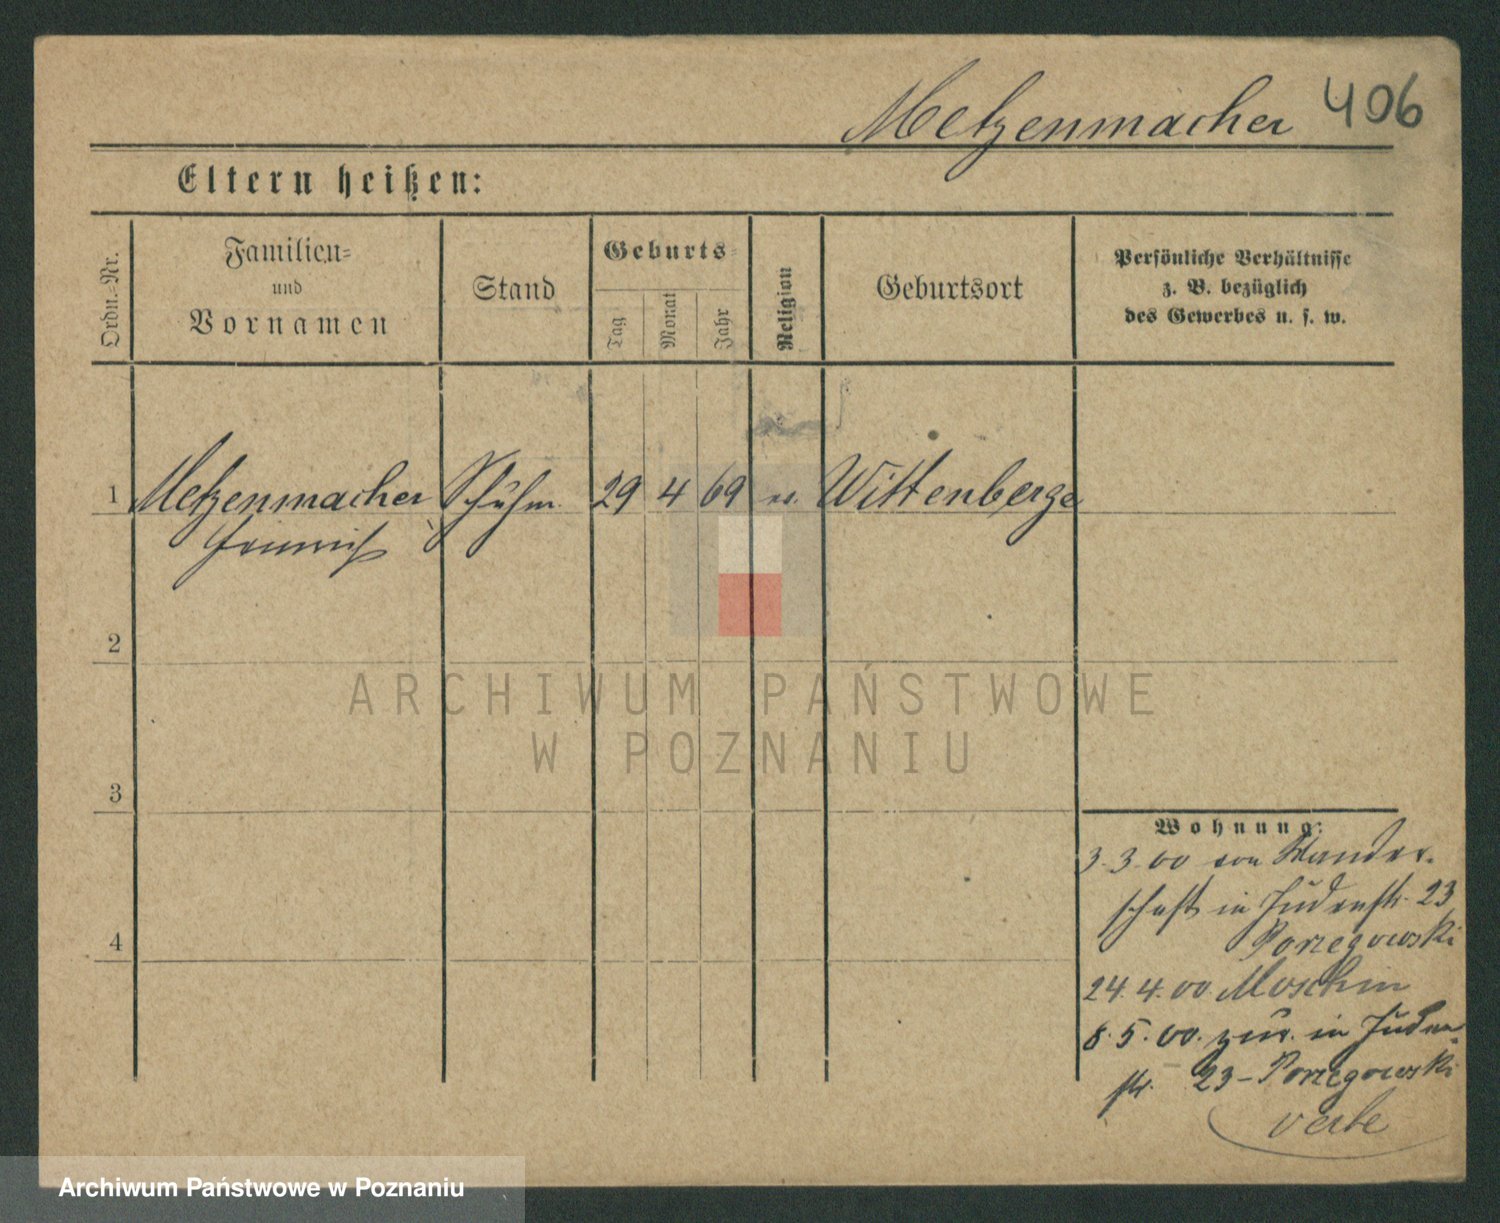 Metzenmacher 406
Eltern heißen:
Ordn.-Nr.
Familien-
und
Vornamen
Stand
Geburts-
Tag
Monat
Jahr
Religion
Geburtsort
Persönliche Verhältnisse
z. B. bezüglich
des Gewerbes u. s. w.
1 Metzenmacher Schuhm. 29 4 69 Wittenberge
Heinrich
2
3
4
ARCHIWUM PAŃSTWOWE
W POZNANIU
Wohnung:
3.3.00 von Wander-
schaft in Judenstr. 23
Porzegowski
24.4.00 Moschin
8.5.00. zur. in Juden-
str. 23 - Porzegowski
Archiwum Państwowe w Poznaniu